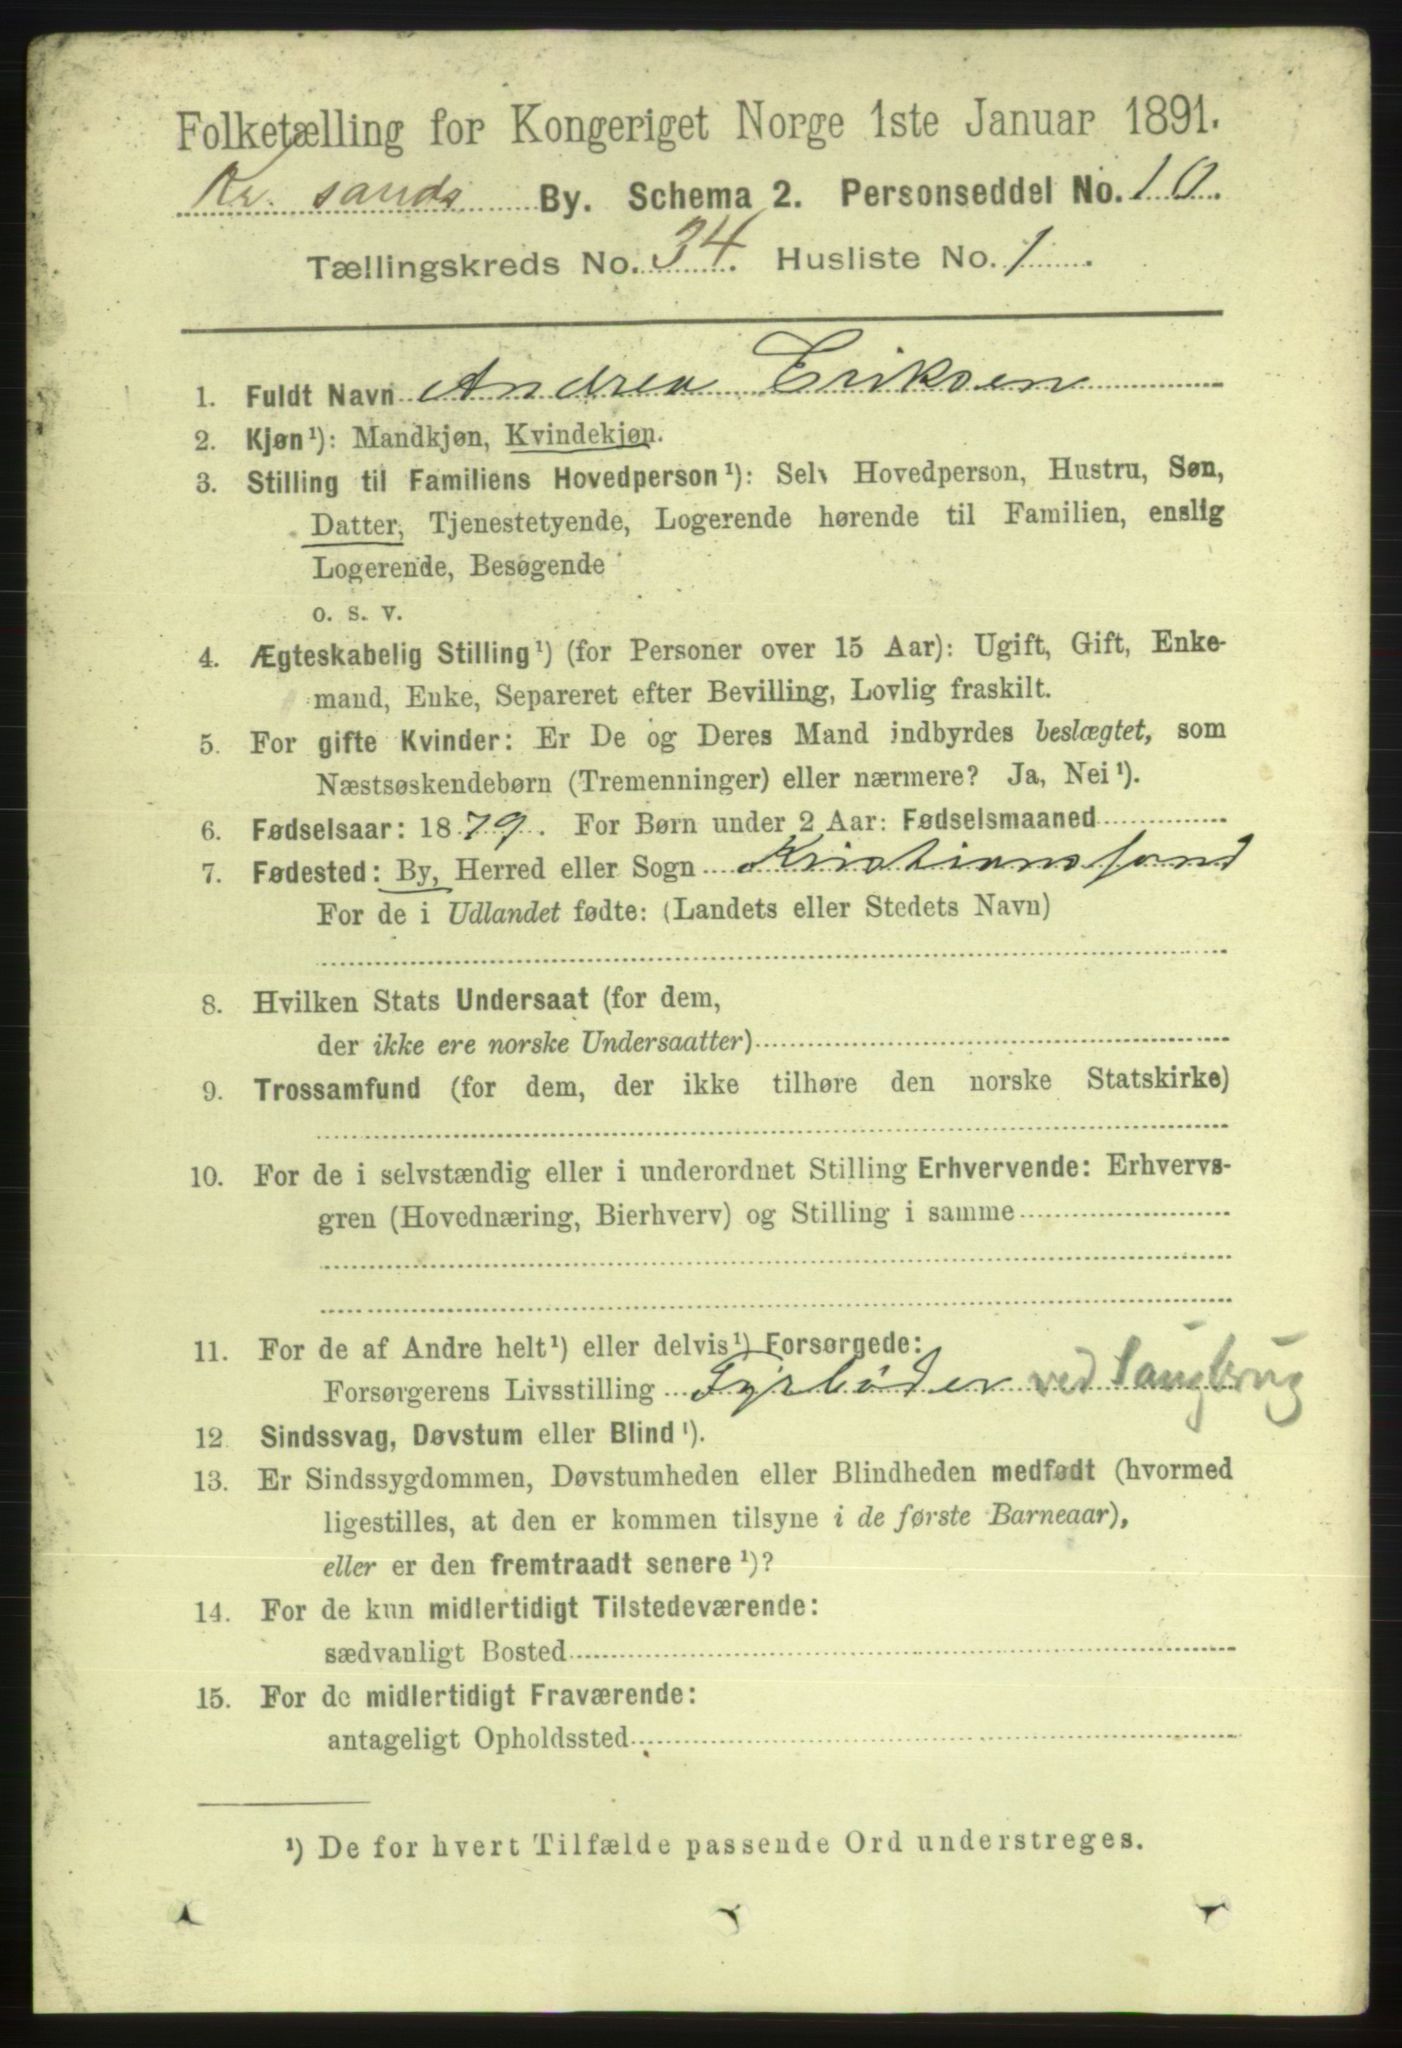 Folketælling for Kongeriget Norge 1ste Januar 1891.
Kr. sands By. Schema 2. Personseddel No. 10.
Tællingskreds No. 34. Husliste No. 1.
1. Fuldt Navn Andrea Eriksen
2. Kjøn¹): Mandkjøn, Kvindekjøn.
3. Stilling til Familiens Hovedperson¹): Selv Hovedperson, Hustru, Søn,
Datter, Tjenestetyende, Logerende hørende til Familien, enslig
Logerende, Besøgende
o. s. v.
4. Ægteskabelig Stilling¹) (for Personer over 15 Aar): Ugift, Gift, Enke-
mand, Enke, Separeret efter Bevilling, Lovlig fraskilt.
5. For gifte Kvinder: Er De og Deres Mand indbyrdes beslægtet, som
Næstsøskendebørn (Tremenninger) eller nærmere? Ja, Nei¹).
6. Fødselsaar: 1879. For Børn under 2 Aar: Fødselsmaaned
7. Fødested: By, Herred eller Sogn Kristianssand
For de i Udlandet fødte: (Landets eller Stedets Navn)
8. Hvilken Stats Undersaat (for dem,
der ikke ere norske Undersaatter)
9. Trossamfund (for dem, der ikke tilhøre den norske Statskirke)
10. For de i selvstændig eller i underordnet Stilling Erhvervende: Erhvervs-
gren (Hovednæring, Bierhverv) og Stilling i samme
11. For de af Andre helt¹) eller delvis¹) Forsørgede:
Forsørgerens Livsstilling Fyrbøder ved Saugbrug
12. Sindssvag, Døvstum eller Blind¹).
13. Er Sindssygdommen, Døvstumheden eller Blindheden medfødt (hvormed
ligestilles, at den er kommen tilsyne i de første Barneaar),
eller er den fremtraadt senere¹)?
14. For de kun midlertidigt Tilstedeværende:
sædvanligt Bosted
15. For de midlertidigt Fraværende:
antageligt Opholdssted
¹) De for hvert Tilfælde passende Ord understreges.